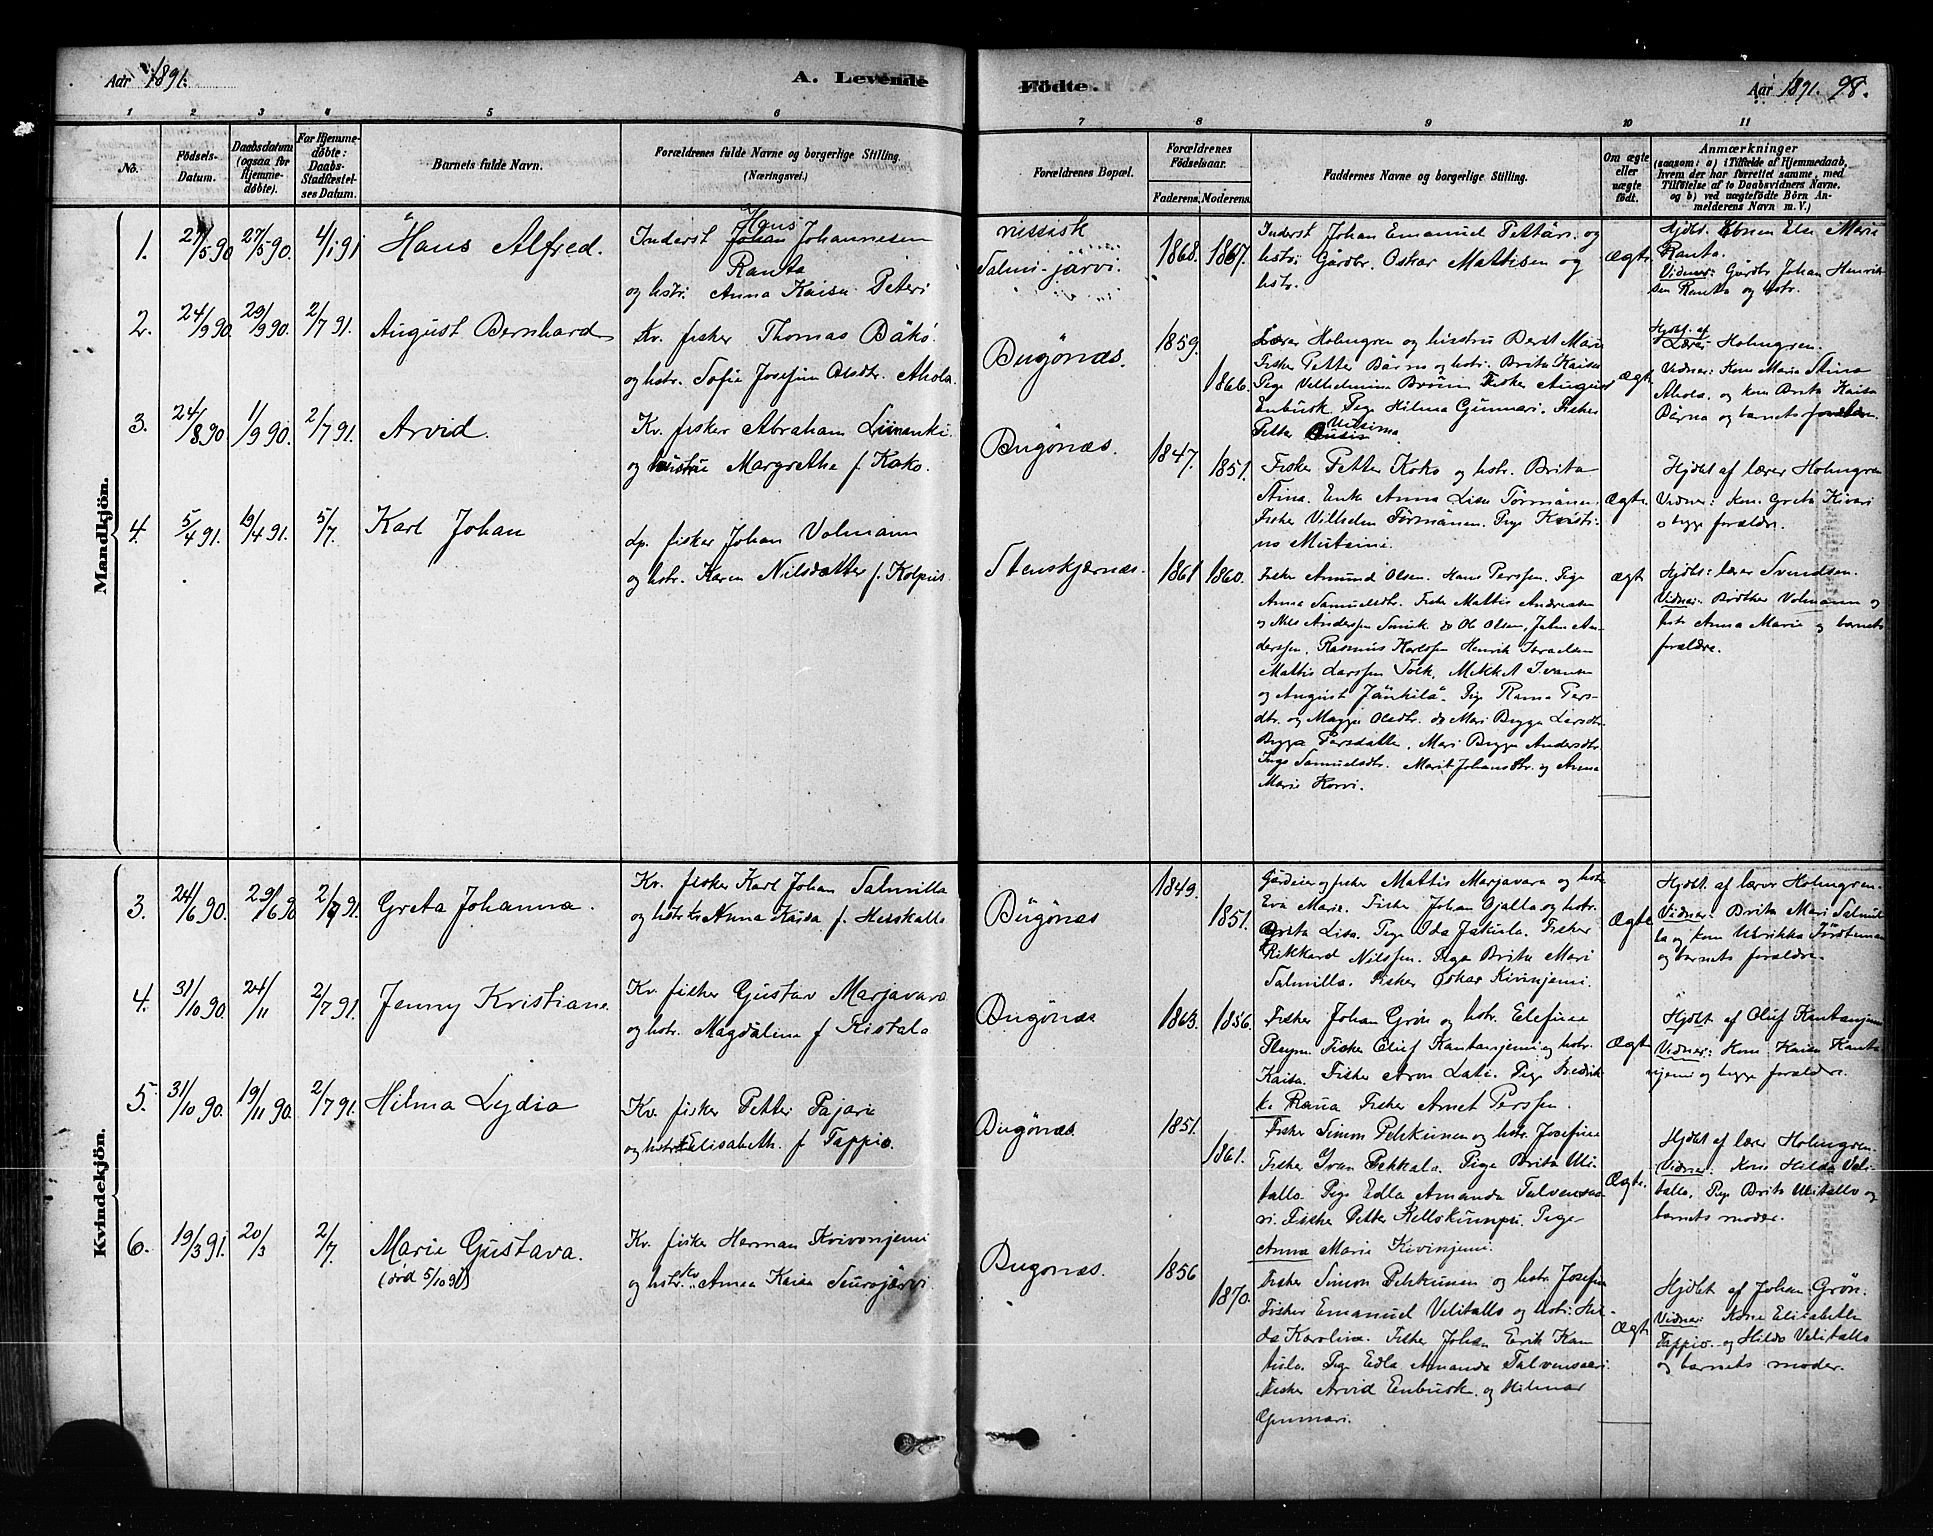 Aar 1891.
A. Levende
Födte.
Aar 1891. 98.
1 2 3 4 5 6 7 8 9 10 11
No.
Födsels-
Datum.
Daabsdatum
(ogsaa for
Hjemme-
döbte).
For Hjemme-
döbte:
Daabs-
Stadfæstel-
ses Datum.
Barnets fulde Navn.
Forældrenes fulde Navne og borgerlige Stilling.
(Næringsvei.)
Forældrenes Bopæl.
Forældrenes
Födselsaar.
Faderens. Moderens.
Faddernes Navne og borgerlige Stilling.
Om ægte
eller
uægte
födt.
Anmærkninger
(saasom: a) i Tilfælde af Hjemmedaab,
hvem der har forrettet samme, med
Tilföielse af to Daabsvidners Navne.
og b) ved uægtefödte Börn An-
melderens Navn m. V.)
Mandkjön.
1. 27/5 90 27/5 90. 4/1 91 Hans Alfred.
Inderst Johan Hans Johannesen
Ranta
og hstr. Anna Kaisa Peteri
russisk
Salmi-järvi.
1868. 1867.
Inderst Johan Emanuel Pettäri og
hstr. Gårdbr. Oskar Mattisen og
hstr.
ægte
Hjdbt. Ebnen Else Marie
Ranta.
Vidner: Gårdbr Johan Henrik-
sen Ranta og hstr.
2. 24/9 90. 29/9 90. 2/7 91. August Bernhard
Kv. fisker Thomas Bäkö
og hstr. Sofie Josefine Olsdtr. Ahola.
Bugönæs.
1859. 1866.
Lærer Holmgren og hustru Beret Marie
Fisker Petter Bärna og hstr. Brita Kaisa
Pige Vilhelmina Brönn Fisker August
Enbusk Pige Hilma Gunnari. Fisker
Petter
ægte
Hjdbt. af
Lærer Holmgren.
Vidner: Kone Maria Stina
Ahola, og kone Brita Kaisa
Bärna og barnets forældre.
3. 24/8 90 1/9 90. 2/7 91. Arvid.
Kv. fisker Abraham Liinanki.
og hustru Margrethe f. Kako.
Bugönæs.
1847. 1851.
Fisker Petter Koko og hstr. Brita
Stina. Enke Anna Lisa Törmänen.
Fisker Vilhelm Törmänen. Pige Kristi-
na Mutaini.
Ægte
Hjdbt af lærer Holmgren
Vidner: Kone Greta Kivari
og begge forældre.
4. 5/4 91. 19/4 91. 5/7. Karl Johan
Lp. fisker Johan Volmann
og hstr. Karen Nilsdatter f. Kolpus
Stenskjærnæs.
1861 1860.
Fisker Amund Olsen. Hans Perssen. Pige
Anna Samuelsdtr. Fisker Mattis Andreasen
og Nils Anderssen Smuk. do Ole Olsen, John An-
derssen, Rasmus Karlssen Henrik Israelsen
Mattis Larssen Tolk, Mikkel Ivarsen
og August Jänkilä. Pige Rauna Pers-
dtr. og Magga Olsdtr. do Mari Bigga Larsdtr.
Bigga Persdatter, Mari Bigga Andersdtr.
Inga Samuelsdtr. Marit Johansdtr. og Anna
Marie Korvi.
ægte
Hjdbt: lærer Svendsen.
Vidner: Brödher Volmann og
hstr Anna Marie og barnets
forældre.
Kvindekjön.
3. 24/6 90. 29/6 90 2/7 91. Greta Johanna.
Kv. fisker Karl Johan Salmilla
og hstr. Anna Kaisa f. Heiskalle
Bugönæs
1849. 1851.
Gårdeier og fisker Mattis Marjavara og hstr.
Eva Marie. Fisker Johan Ojalla og hstr.
Brita Lisa. Pige Ida Jakula. Fisker
Rikkard Nilssen. Pige Brita Mari
Salmilla. Fisker Oskar Kivinjemi.
Ægte
Hjdbt. af lærer Holmgren.
Vidner: Brita Mari Salmil-
la og kone Ulrikka Förstenman
og barnets forældre.
4. 31/10 90. 24/11 2/7 91. Jenny Kristiane.
Kv. fisker Gustav Marjavara
og hstr. Magdalena f Fistala
Bugönæs
1863. 1856.
Fisker Johan Grön og hstr. Elefine
Pleym. Fisker Oluf Kantanjemi og hstr.
Kaisa. Fisker Aron Lati. Pige Fredrik-
ke Rana Fisker Arnet Perssen.
Ægte
Hjdbt af Oluf Kantanjemi
Vidner: Kone Kaisa Kanta
njemi og begge forældre.
5. 31/10 90. 19/11 90. 2/7 91. Hilma Lydia
Kv. fisker Petter Pajari
og hstr. Elisabeth. f Tappio.
Bugönæs.
1851. 1861.
Fisker Simon Pekkinen og hstr. Josefine
Fisker Ivan Pekkala. Pige Brita Uli-
tallo. Pige Edla Amanda Talvensaa-
ri. Fisker Petter Kellokumpu. Pige
Anna Marie Kivinjemi.
Ægte.
Hjdbt af lærer Holmgren.
Vidner: Kone Hilda Veli-
tallo, Pige Brita Ulitallo og
barnets moder.
6. 19/3 91. 20/3 2/7. Marie Gustava.
(död 5/10 91)
Kv. fisker Herman Kvivonjemi
og hstr. Kv. Anna Kaisa Seurojärvi.
Bugönæs.
1856 1870.
Fisker Simon Pekkinen og hstr Josefine
Fisker Emanuel Velitallo og hstr. Hil-
da Karolina. Fisker Johan Erik Kan
tula. Pige Edla Amanda Talvensaari.
Fisker Arvid Enbusk. og Hilmar
Gunnari.
Ægte
Hjdbt af Johan Grön.
Vidner: Kone Elisabeth
Tappio. og Hilda Velitallo
og barnets moder.